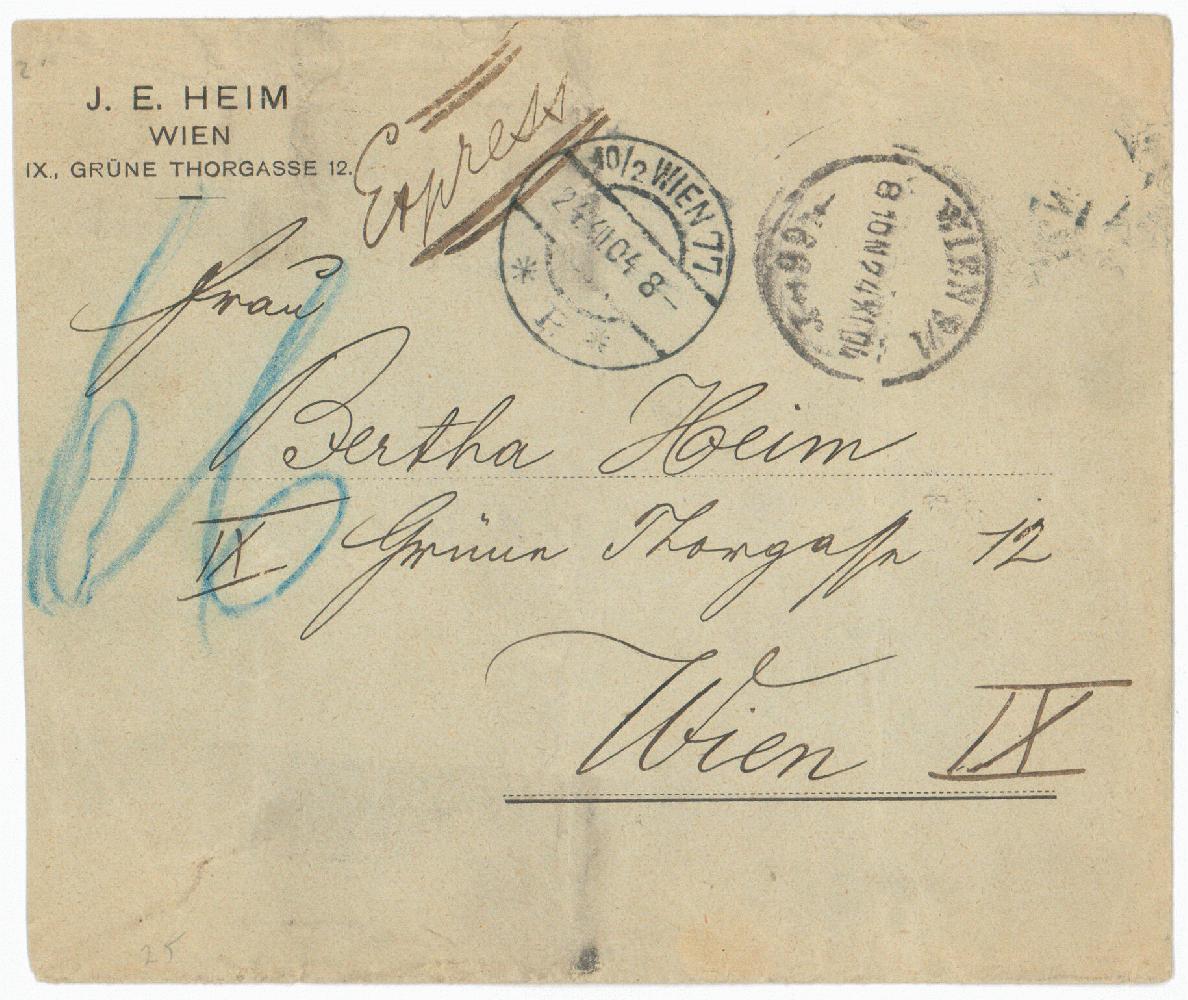 J. E. HEIM
WIEN
IX., GRÜNE THORGASSE 12.
Express
10/2 WIEN 77
24 XII 04 8–
* F *
WIEN 9/1
8 10N 24 XII 04
66
Frau
Bertha Heim
IX Grüne Thorgasse 12
Wien IX
25